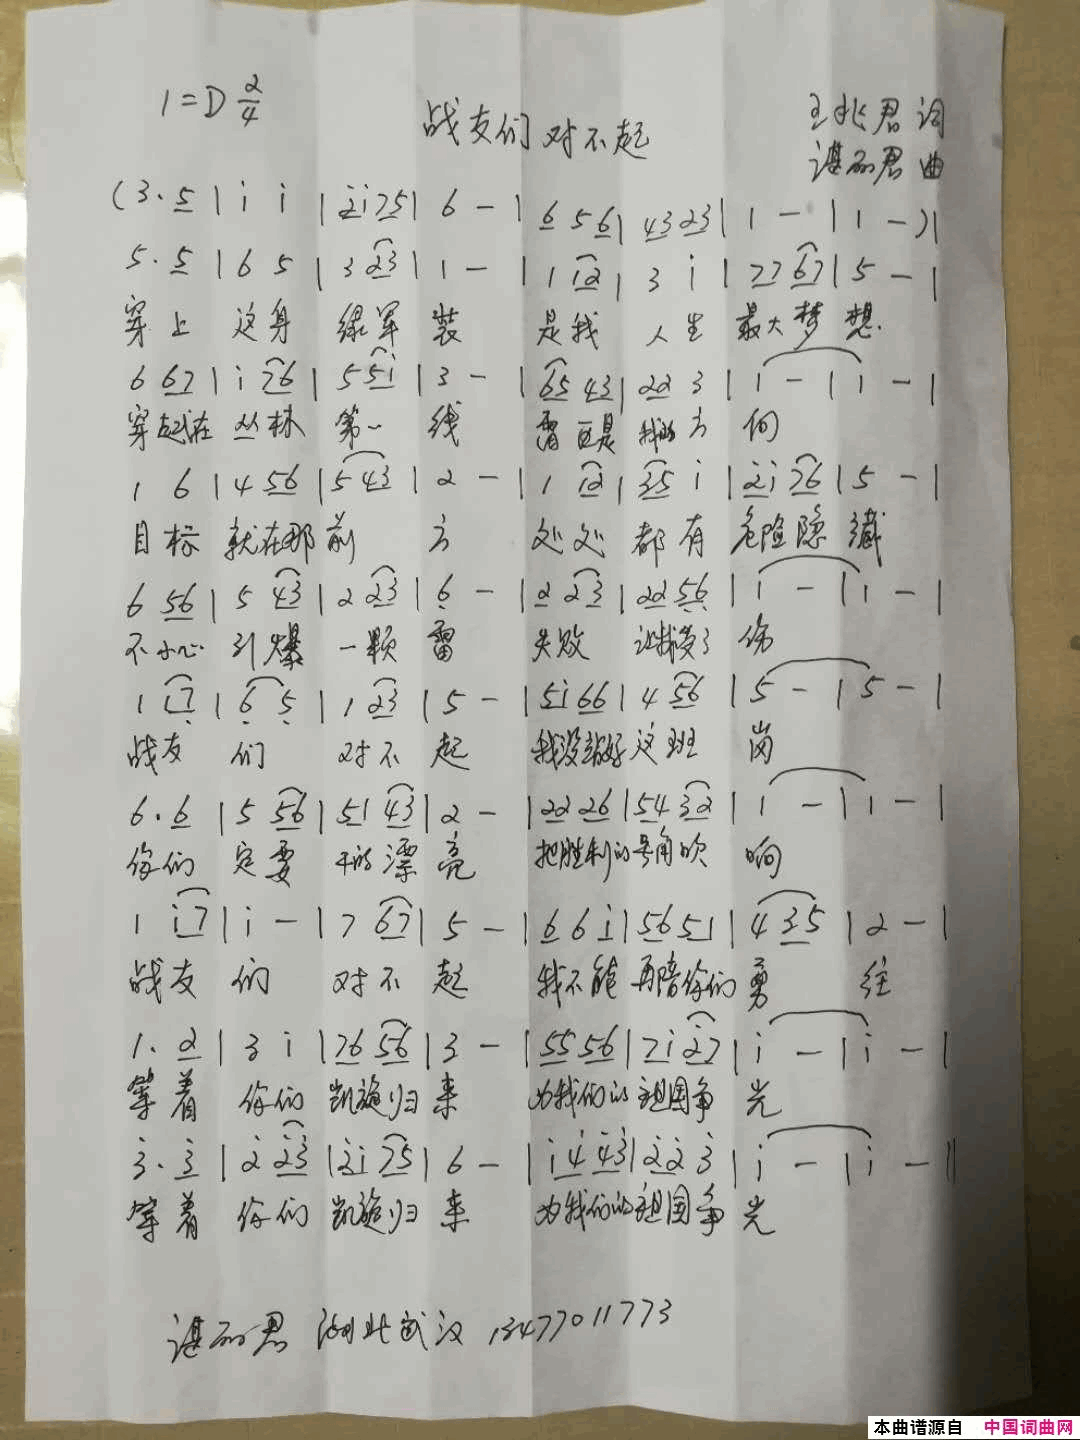 1=D 2/4
战友们对不起
王兆君 词
谌丽君 曲
(3. 5 | i i | 2i75 | 6 - | 6 5 6 | 43 23 | 1 - | 1 -)|
5. 5 | 6 5 | 3 23 | 1 - | 1 12 | 3 i | 77 67 | 5 - |
穿上 这身 绿军 装 是我 人生 最大梦想.
6 67 | i 76 | 5 5i | 3 - | 65 43 | 22 3 | 1 - | 1 - |
穿越在 丛林 第一 线 雷区是 我的方 向
1 6 | 4 56 | 5 43 | 2 - | 1 12 | 35 i | 2i 76 | 5 - |
目标 就在那 前 方 处处 都有 危险隐 藏
6 56 | 5 43 | 2 23 | 6 - | 2 23 | 22 56 | 1 - | 1 - |
不小心 引爆 一颗 雷 失败 让我受了 伤
1 17 | 6 5 | 1 23 | 5 - | 5i 66 | 4 56 | 5 - | 5 - |
战友 们 对不 起 我没站好 这班 岗
6. 6 | 5 56 | 51 43 | 2 - | 22 26 | 54 32 | 1 - | 1 - |
你们 定要 干的漂 亮 把胜利的 号角吹 响
1 i7 | i - | 7 67 | 5 - | 6 6 i | 56 51 | 4 35 | 2 - |
战友 们 对不 起 我不能 再陪你们 勇 往
1. 2 | 3 i | 76 56 | 3 - | 55 56 | 7i 27 | i - | i - |
等着 你们 凯旋归 来 为我们的 祖国争 光
3. 3 | 2 23 | 2i 75 | 6 - | i4 43 | 22 3 | i - | i - ||
等着 你们 凯旋归 来 为我们的 祖国争 光
谌丽君 湖北武汉 13477011773
本曲谱源自 中国词曲网